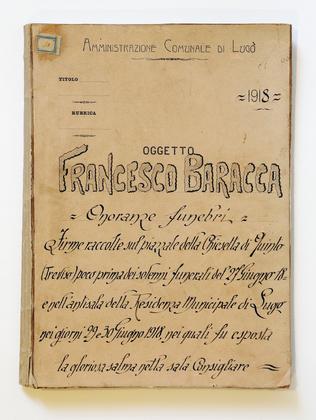 AMMINISTRAZIONE COMUNALE DI LUGO
TITOLO
= 1918 =
RUBRICA
OGGETTO
FRANCESCO BARACCA
= Onoranze funebri =
Firme raccolte sul piazzale della Chiesella di Quinto
(Treviso) poco prima dei solenni funerali del 27 Giugno 18 =
e nell'antisala della Residenza Municipale di Lugo
nei giorni 29 e 30 Giugno 1918, nei quali fu esposta
la gloriosa salma nella sala Consigliare =